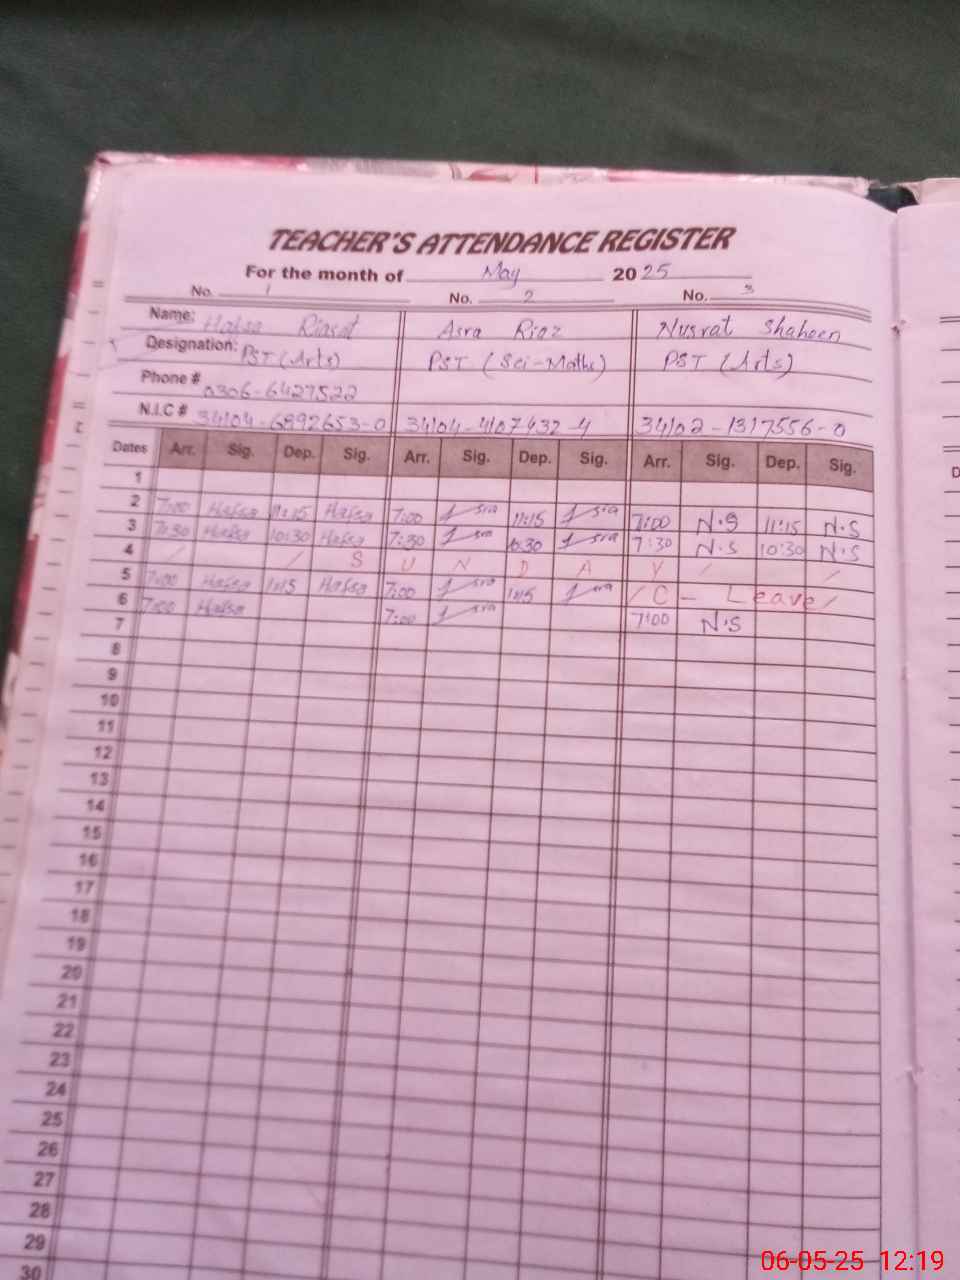 TEACHER'S ATTENDANCE REGISTER
For the month of May 2025
No. 1 No. 2 No. 3
Name: Hafsa Riasat Asra Riaz Nusrat Shaheen
Designation: PST (Arts) PST (Sci-Maths) PST (Arts)
Phone # 0306-6427522
N.I.C # 34104-6892653-0 34104-4107432-4 34102-1317556-0
Dates Arr. Sig. Dep. Sig. Arr. Sig. Dep. Sig. Arr. Sig. Dep. Sig.
1
2 7:00 Hafsa 11:15 Hafsa 7:00 Asra 11:15 Asra 7:00 N.S 11:15 N.S
3 7:30 Hafsa 10:30 Hafsa 7:30 Asra 10:30 Asra 7:30 N.S 10:30 N.S
4 / / S U N D A Y / /
5 7:00 Hafsa 1:15 Hafsa 7:00 Asra 1:15 Asra / C - Leave /
6 7:00 Hafsa 7:00 Asra 7:00 N.S
7
8
9
10
11
12
13
14
15
16
17
18
19
20
21
22
23
24
25
26
27
28
29
30
06-05-25 12:19